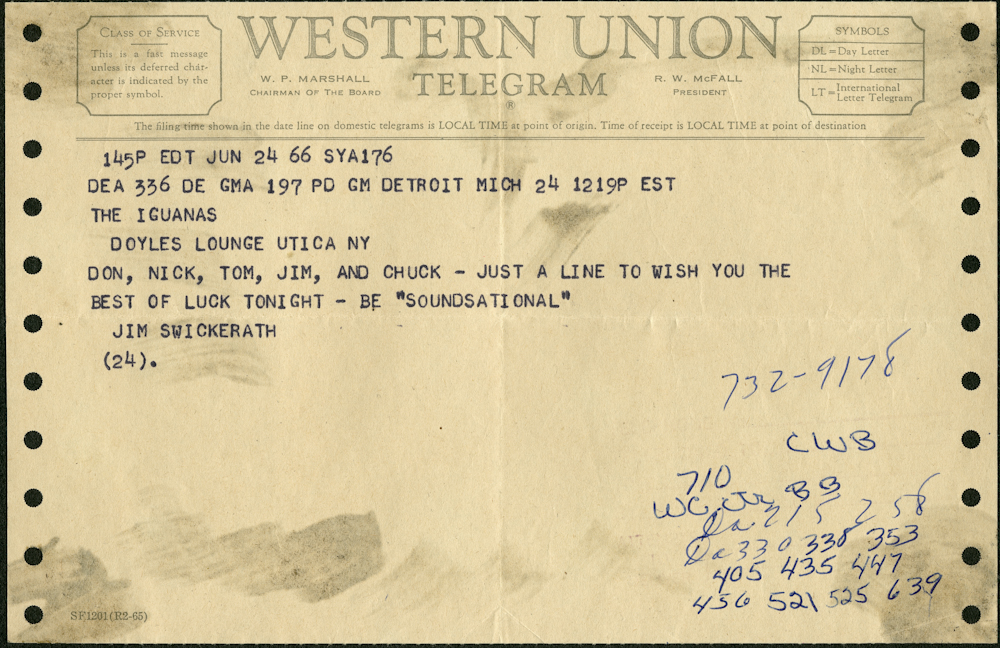 CLASS OF SERVICE
This is a fast message
unless its deferred char-
acter is indicated by the
proper symbol.
WESTERN UNION
TELEGRAM
®
W. P. MARSHALL
CHAIRMAN OF THE BOARD
R. W. McFALL
PRESIDENT
SYMBOLS
DL=Day Letter
NL=Night Letter
LT=International Letter Telegram
The filing time shown in the date line on domestic telegrams is LOCAL TIME at point of origin. Time of receipt is LOCAL TIME at point of destination
145P EDT JUN 24 66 SYA176
DEA 336 DE GMA 197 PD GM DETROIT MICH 24 1219P EST
THE IGUANAS
DOYLES LOUNGE UTICA NY
DON, NICK, TOM, JIM, AND CHUCK - JUST A LINE TO WISH YOU THE
BEST OF LUCK TONIGHT - BE "SOUNDSATIONAL"
JIM SWICKERATH
(24).
732-9178
CWB
710
BB
Da 215 258
Da 330 338 353
405 435 447
456 521 525 639
SF1201(R2-65)